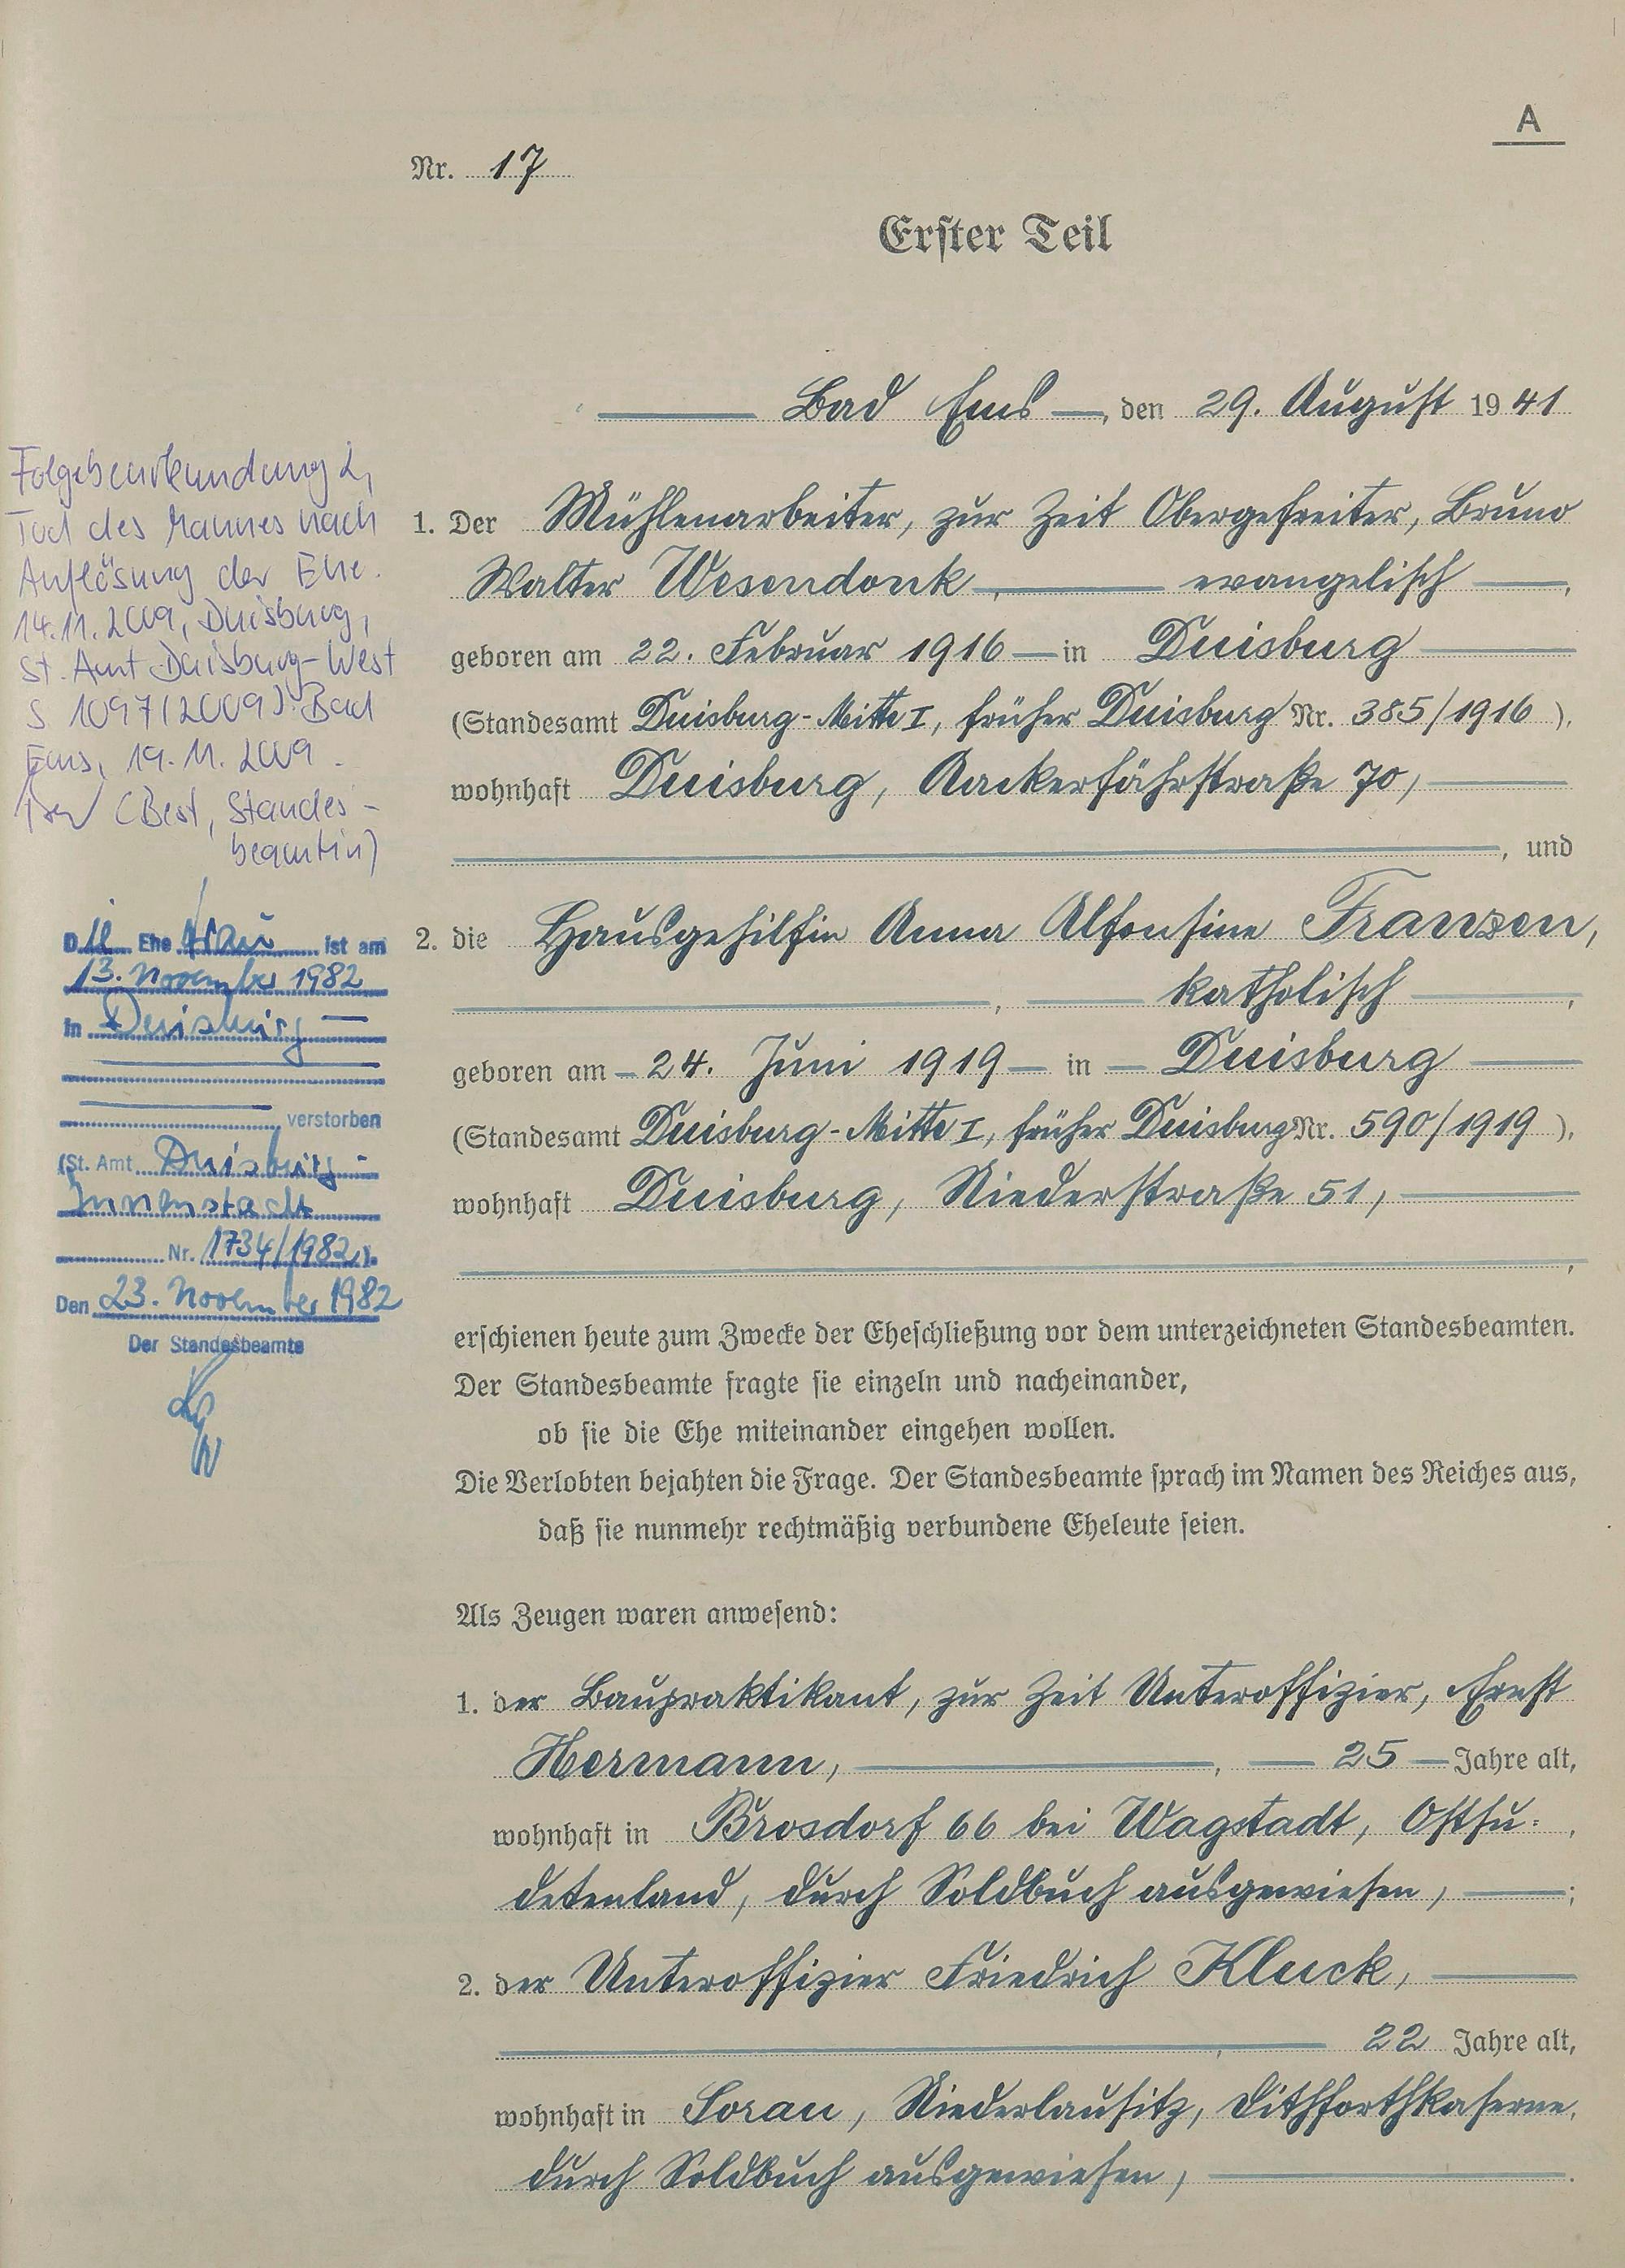 A
Nr. 17
Erster Teil
Bad Ems, den 29. August 1941
Folgebeurkundung 2,
Tod des Mannes nach
Auflösung der Ehe.
14.11.2009, Duisburg,
St. Amt Duisburg-West
S 1097/2009). Bad
Ems, 19.11.2009.
(Best, Standes-
beamtin)
1. Der Mühlenarbeiter, zur Zeit Obergefreiter, Bruno
Walter Wesendonk, evangelisch,
geboren am 22. Februar 1916 in Duisburg
(Standesamt Duisburg-Mitte I, früher Duisburg Nr. 385/1916),
wohnhaft Duisburg, Aackerfährstraße 70,
, und
Die Ehefrau ist am
13. November 1982
in Duisburg
verstorben
(St. Amt Duisburg-
Innenstadt
Nr. 1734/1982).
Den 23. November 1982
Der Standesbeamte
2. die Hausgehilfin Anna Alfonsine Franzen,
, katholisch,
geboren am 24. Juni 1919 in Duisburg
(Standesamt Duisburg-Mitte I, früher Duisburg Nr. 590/1919),
wohnhaft Duisburg, Niederstraße 51,
erschienen heute zum Zwecke der Eheschließung vor dem unterzeichneten Standesbeamten.
Der Standesbeamte fragte sie einzeln und nacheinander,
ob sie die Ehe miteinander eingehen wollen.
Die Verlobten bejahten die Frage. Der Standesbeamte sprach im Namen des Reiches aus,
daß sie nunmehr rechtmäßig verbundene Eheleute seien.
Als Zeugen waren anwesend:
1. der Baupraktikant, zur Zeit Unteroffizier, Ernst
Hermann, , 25 Jahre alt,
wohnhaft in Brosdorf 66 bei Wagstadt, Ostsu=
detenland, durch Soldbuch ausgewiesen, ;
2. der Unteroffizier Friedrich Kluck,
, 22 Jahre alt,
wohnhaft in Sorau, Niederlausitz, Dithfurthkaserne,
durch Soldbuch ausgewiesen, .